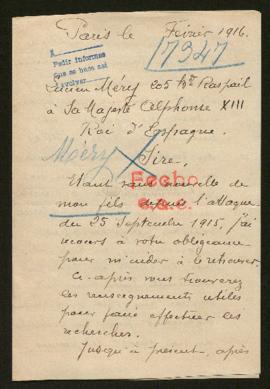 Paris le Février 1916.
17347
Pedir informes
que se hace asi
y volver
Lucien Méry 205 Bd Raspail
à Sa Majesté Alphonse XIII
Roi d'Espagne.
Méry
Sire,
Hecho
Etant sans nouvelle de
mon fils depuis l'attaque
du 25 Septembre 1915, j'ai
recours à votre obligeance
pour m'aider à le retrouver.
Ci-après vous trouverez
les renseignements utiles
pour faire effectuer les
recherches.
Jusqu'à présent, après